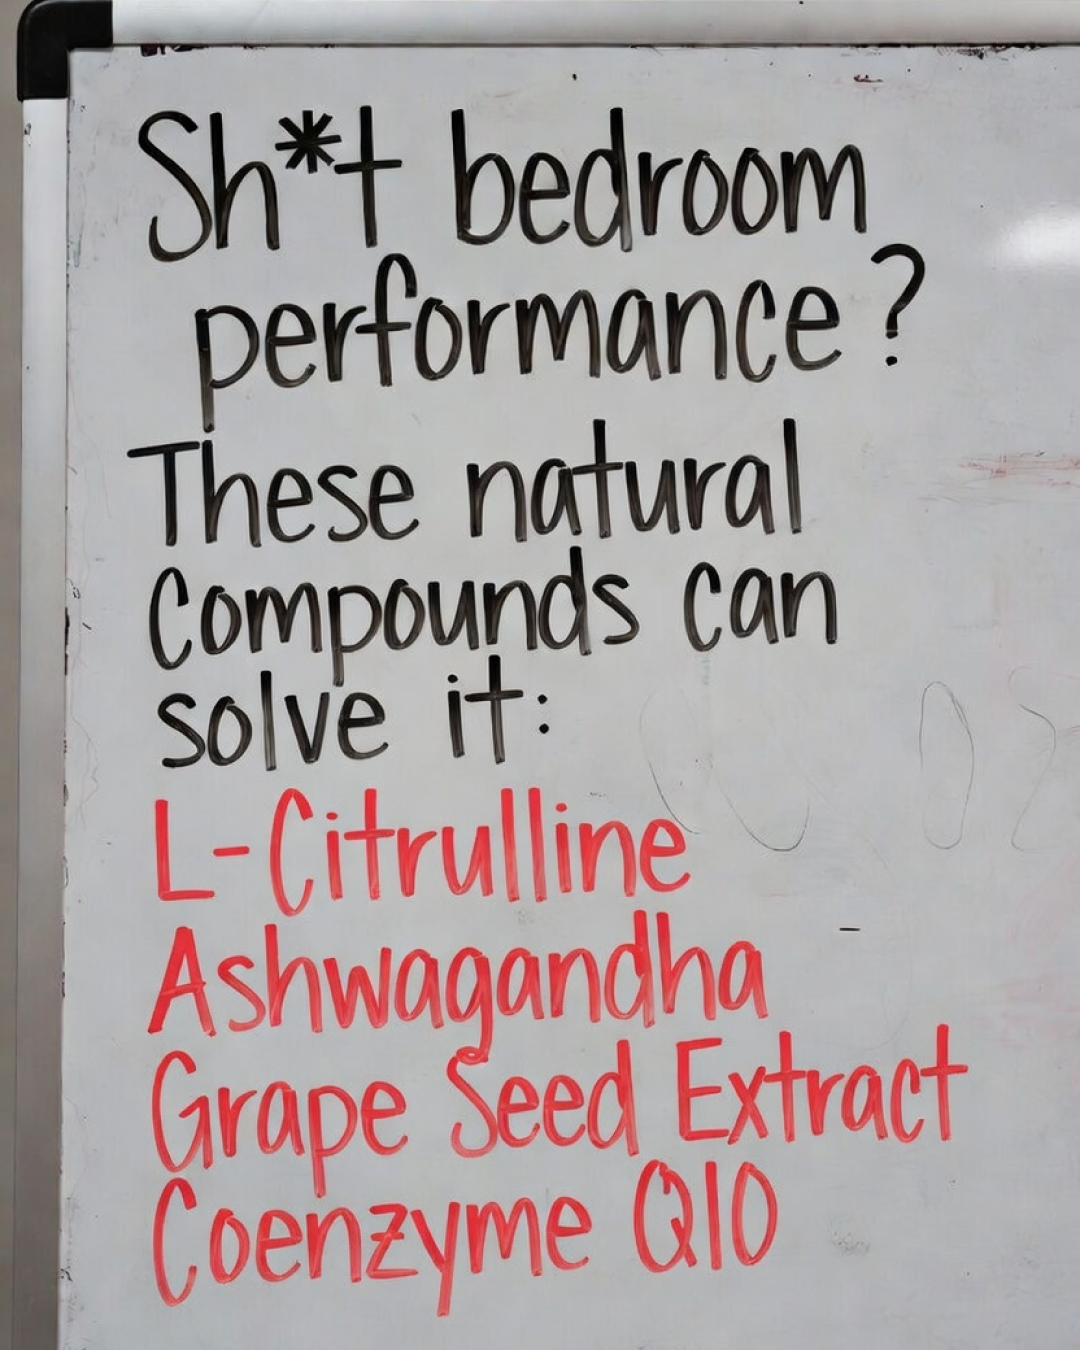 Sh*t bedroom
performance?
These natural
Compounds can
solve it:
L-Citrulline
Ashwagandha
Grape Seed Extract
Coenzyme Q10